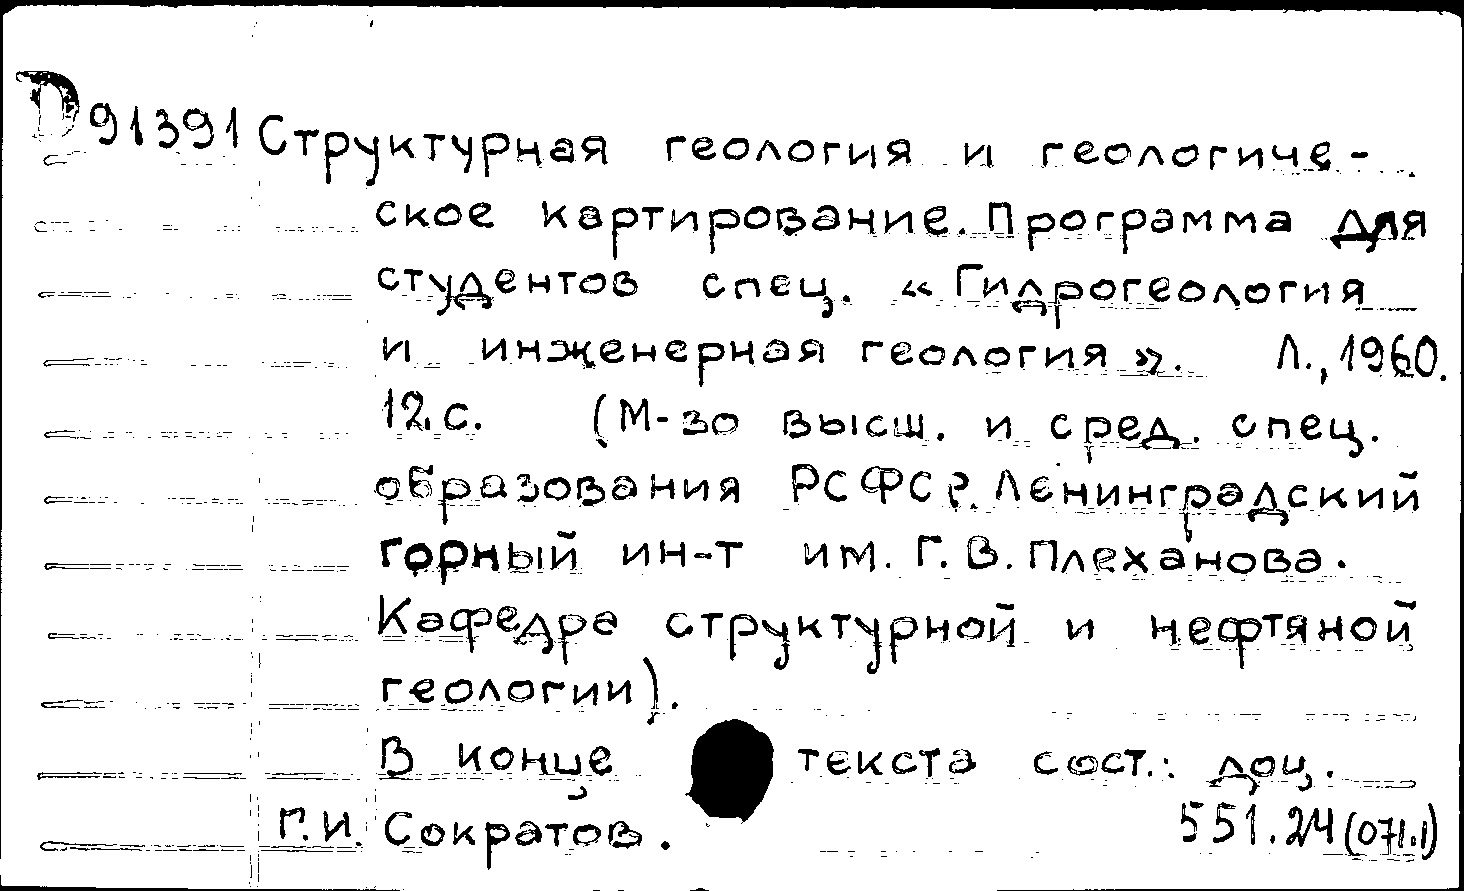 D91391 Структурная геология и геологиче-
ское картирование. Программа для
студентов спец. «Гидрогеология
и инженерная геология». Л., 1960.
12.с. (М-зо высш. и сред. спец.
образования РСФСР. Ленинградский
горный ин-т им. Г. В. Плеханова.
Кафедра структурной и нефтяной
геологии).
В конце текста сост.: доц.
Г. И. Сократов. 551.24(071.1)